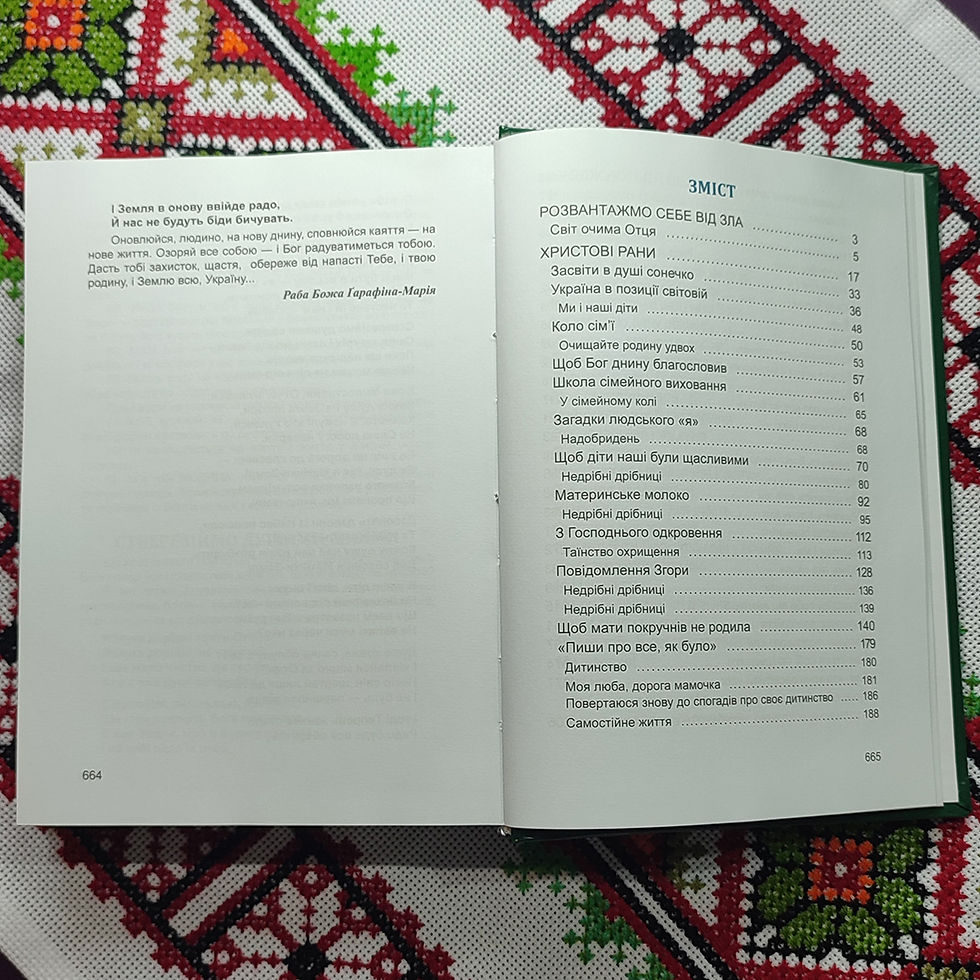 І Земля в онову ввійде радо,
Й нас не будуть біди бичувать.
Оновлюйся, людино, на нову днину, сповнюйся каяття — на
нове життя. Озоряй все собою — і Бог радуватиметься тобою.
Дасть тобі захисток, щастя, обереже від напасті Тебе, і твою
родину, і Землю всю, Україну...
Раба Божа Ґарафіна-Марія
664
ЗМІСТ
РОЗВАНТАЖМО СЕБЕ ВІД ЗЛА
Світ очима Отця ........ 3
ХРИСТОВІ РАНИ ........ 5
Засвіти в душі сонечко ........ 17
Україна в позиції світовій ........ 33
Ми і наші діти ........ 36
Коло сім’ї ........ 48
Очищайте родину удвох ........ 50
Щоб Бог днину благословив ........ 53
Школа сімейного виховання ........ 57
У сімейному колі ........ 61
Загадки людського «я» ........ 65
Надобридень ........ 68
Щоб діти наші були щасливими ........ 68
Недрібні дрібниці ........ 70
Материнське молоко ........ 80
Недрібні дрібниці ........ 92
З Господнього одкровення ........ 95
Таїнство охрищення ........ 112
Повідомлення Згори ........ 113
Недрібні дрібниці ........ 128
Недрібні дрібниці ........ 136
Щоб мати покручнів не родила ........ 139
«Пиши про все, як було» ........ 140
Дитинство ........ 179
Моя люба, дорога мамочка ........ 180
Повертаюся знову до спогадів про своє дитинство ........ 181
Самостійне життя ........ 186
188
665